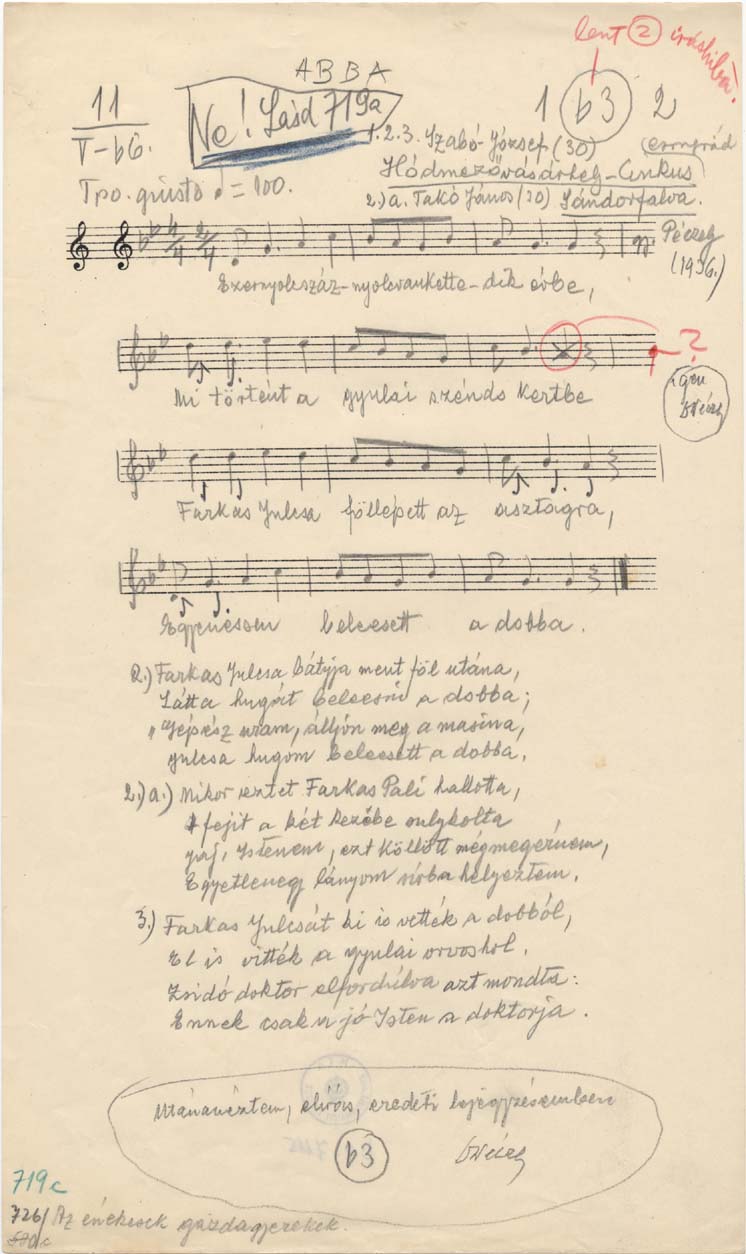 lent 2 íráshiba!
A B B A
11
V-b6.
Ne! Lásd 719a
1 b3 2
1.2.3. Szabó József (30)
(Csongrád
Hódmezővásárhely-Cinkus
Tpo. giusto = 100.
2.)a. Takó János (20) Sándorfalva.
4/4 2/4
Péczely
(1936.)
Ezernyolcszáz-nyolcvankette-dik évbe,
Mi történt a gyulai szénás kertbe
?
igen
Farkas Julcsa föllépett az asztagra,
Egyenessen beleesett a dobba.
2.) Farkas Julcsa bátyja ment föl utána,
Látta hugát beleesni a dobba;
„ Gépész uram, álljon meg a masina,
Julcsa hugom beleesett a dobba.
2.)a.) Mikor eztet Farkas Pali hallotta,
fejit a két kezébe
jaj, Istenem, ezt köllött mégmegérnem,
Egyetlenegy lányom helyeztem.
3.) Farkas Julcsát ki is vették a dobból,
El is vitték a gyulai
Zsidó doktor elfordúlva azt mondta:
Ennek csak a jó Isten a doktorja.
Utánanéztem, előős, eredeti bejegyzésemben
b3
719c
726/ Az énekesek gazdagyerekek.